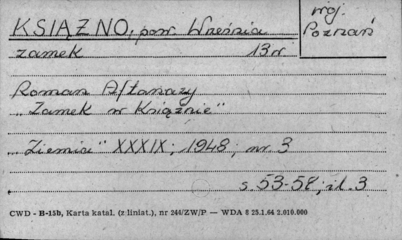 KSIĄŻNO, pow. Września
woj. Poznań
zamek 13 w.
Roman Aftanazy
"Zamek w Książnie"
"Ziemia" XXXIX; 1948; nr. 3
s. 53-58; il. 3
CWD - B-15b, Karta katal. (z liniat.), nr 244/ZW/P — WDA 8 25.1.64 2.010.000